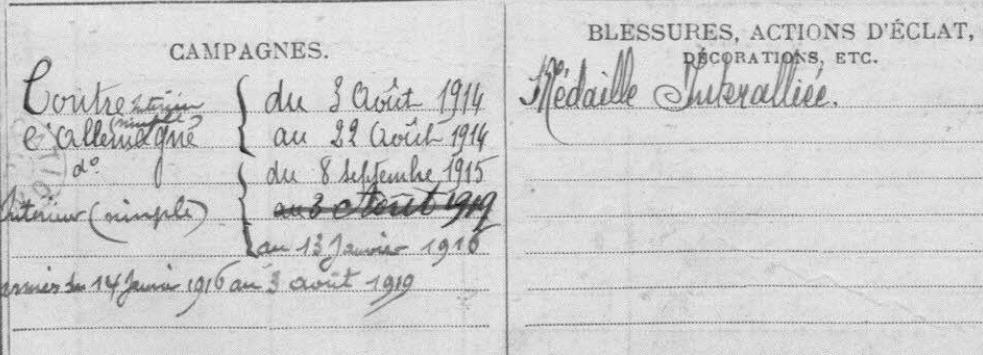 CAMPAGNES.
Contre intérieur du 3 Août 1914
(simple)
l'Allemagne au 22 Août 1914
d° du 8 Septembre 1915
Intérieur (simple) au 3 Août 1919
au 13 Janvier 1916
armées du 14 Janvier 1916 au 3 août 1919
BLESSURES, ACTIONS D'ÉCLAT,
DÉCORATIONS, ETC.
Médaille Interalliée.